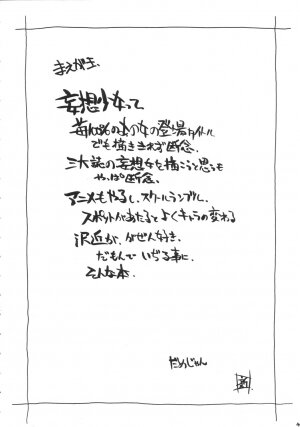 まえがき
妄想少女って
でも描ききれず断念。
三大誌の妄想女を描こうと思うも
やっぱ断念。
アニメもやるし、スクールランブル。
スポットがあたるとよくキャラの変わる
沢近が、なぜん好き。
だもんで いぢる事に。
そんな本。
だめじゃん